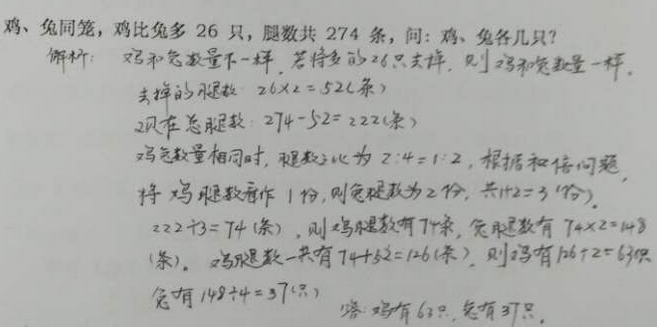 鸡、兔同笼，鸡比兔多 26 只，腿数共 274 条，问：鸡、兔各几只？
解析：鸡和兔数量不一样，若将多的26只去掉，则鸡和兔数量一样。
去掉的腿数：26×2=52(条)
现在总腿数：274-52=222(条)
鸡兔数量相同时，腿数之比为 2:4=1:2，根据和倍问题，
将鸡腿数看作1份，则兔腿数为2份，共1+2=3(份)。
222÷3=74(条)，则鸡腿数有74条，兔腿数有 74×2=148
(条)。鸡腿数一共有74+52=126(条)，则鸡有126÷2=63只
兔有148÷4=37(只)
答：鸡有63只，兔有37只。